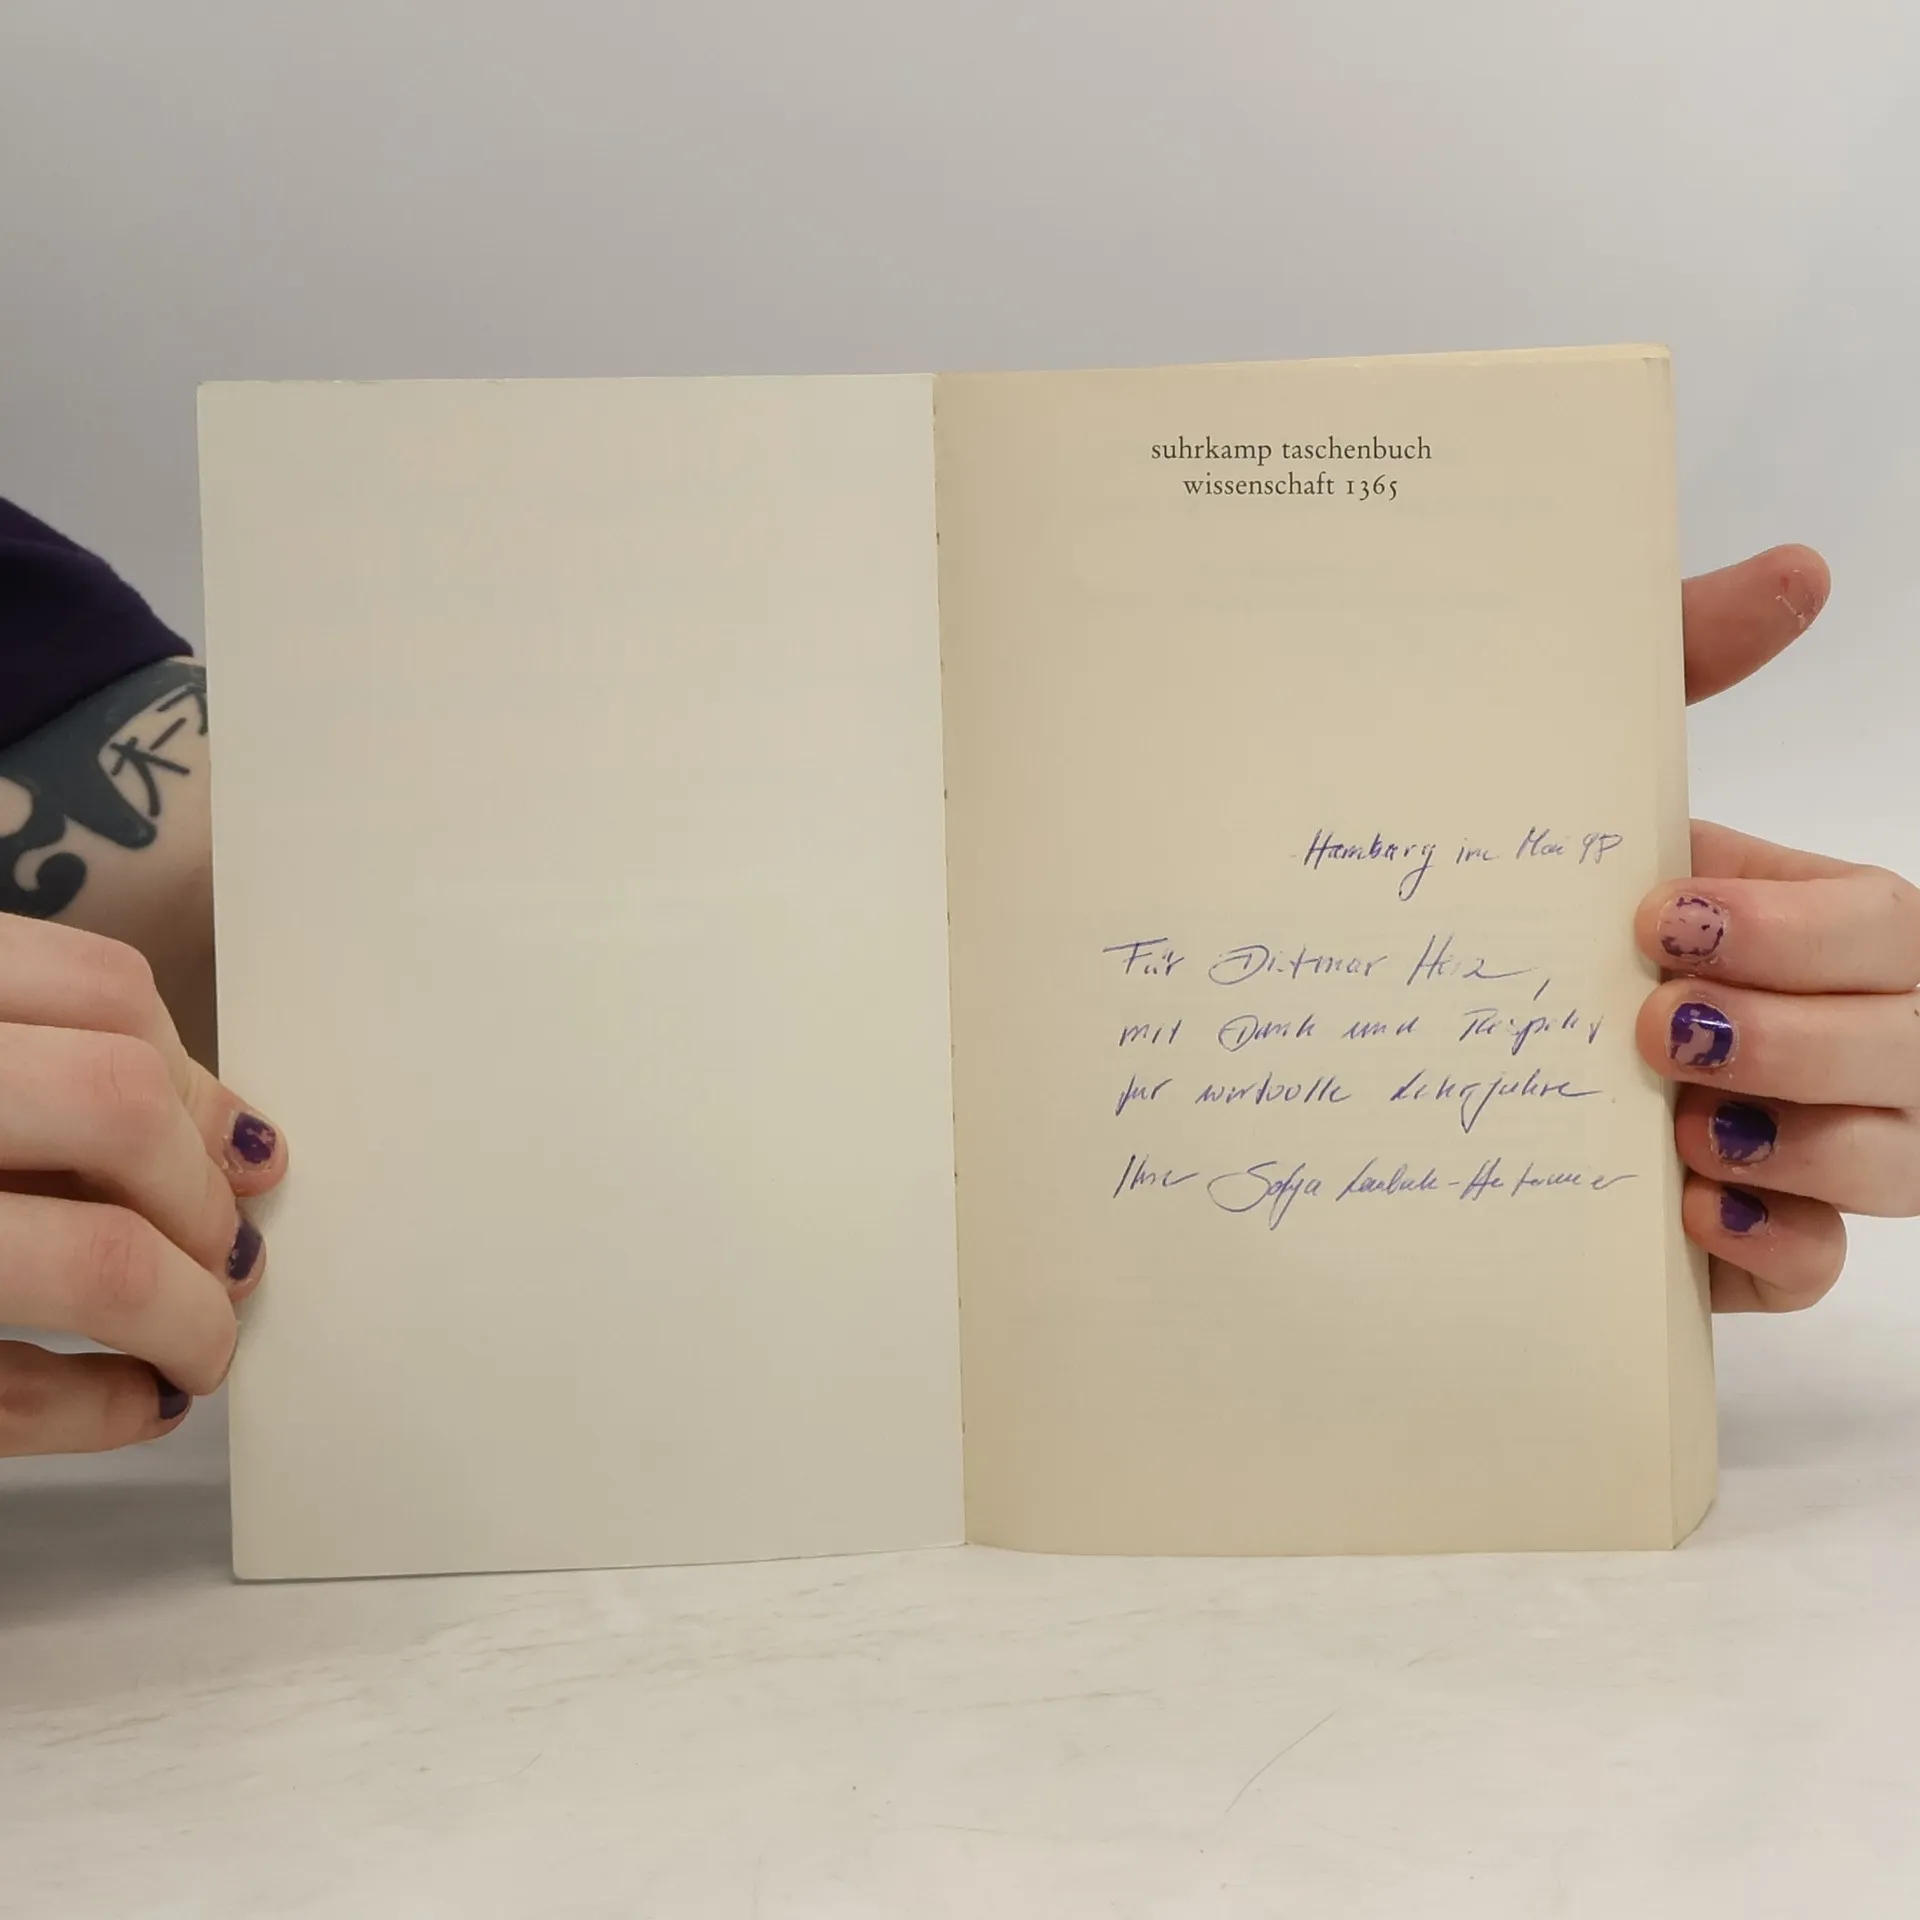 suhrkamp taschenbuch
wissenschaft 1365
Hamburg im Mai 98
Für Dietmar Herz,
mit Dank und Respekt
für wertvolle Lehrjahre
Ihre Sofja